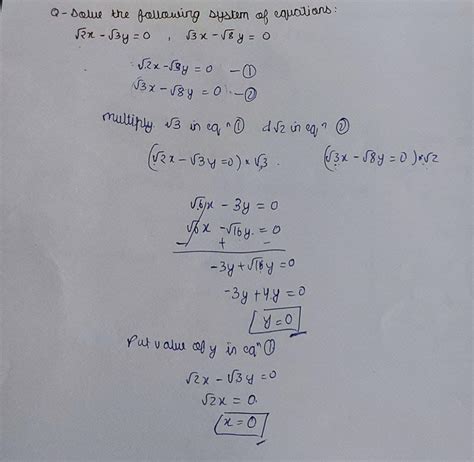 Q- Solve the following system of equations:
√2x - √3y = 0 , √3x - √8y = 0
√2x - √3y = 0 — ①
√3x - √8y = 0 — ②
Multiply √3 in eqⁿ ① & √2 in eqⁿ ②
(√2x - √3y = 0) × √3 . (√3x - √8y = 0) × √2
√6x - 3y = 0
√6x - √16y = 0
- + -
-3y + √16y = 0
-3y + 4y = 0
y = 0
Put value of y in eqⁿ ①
√2x - √3y = 0
√2x = 0
x = 0